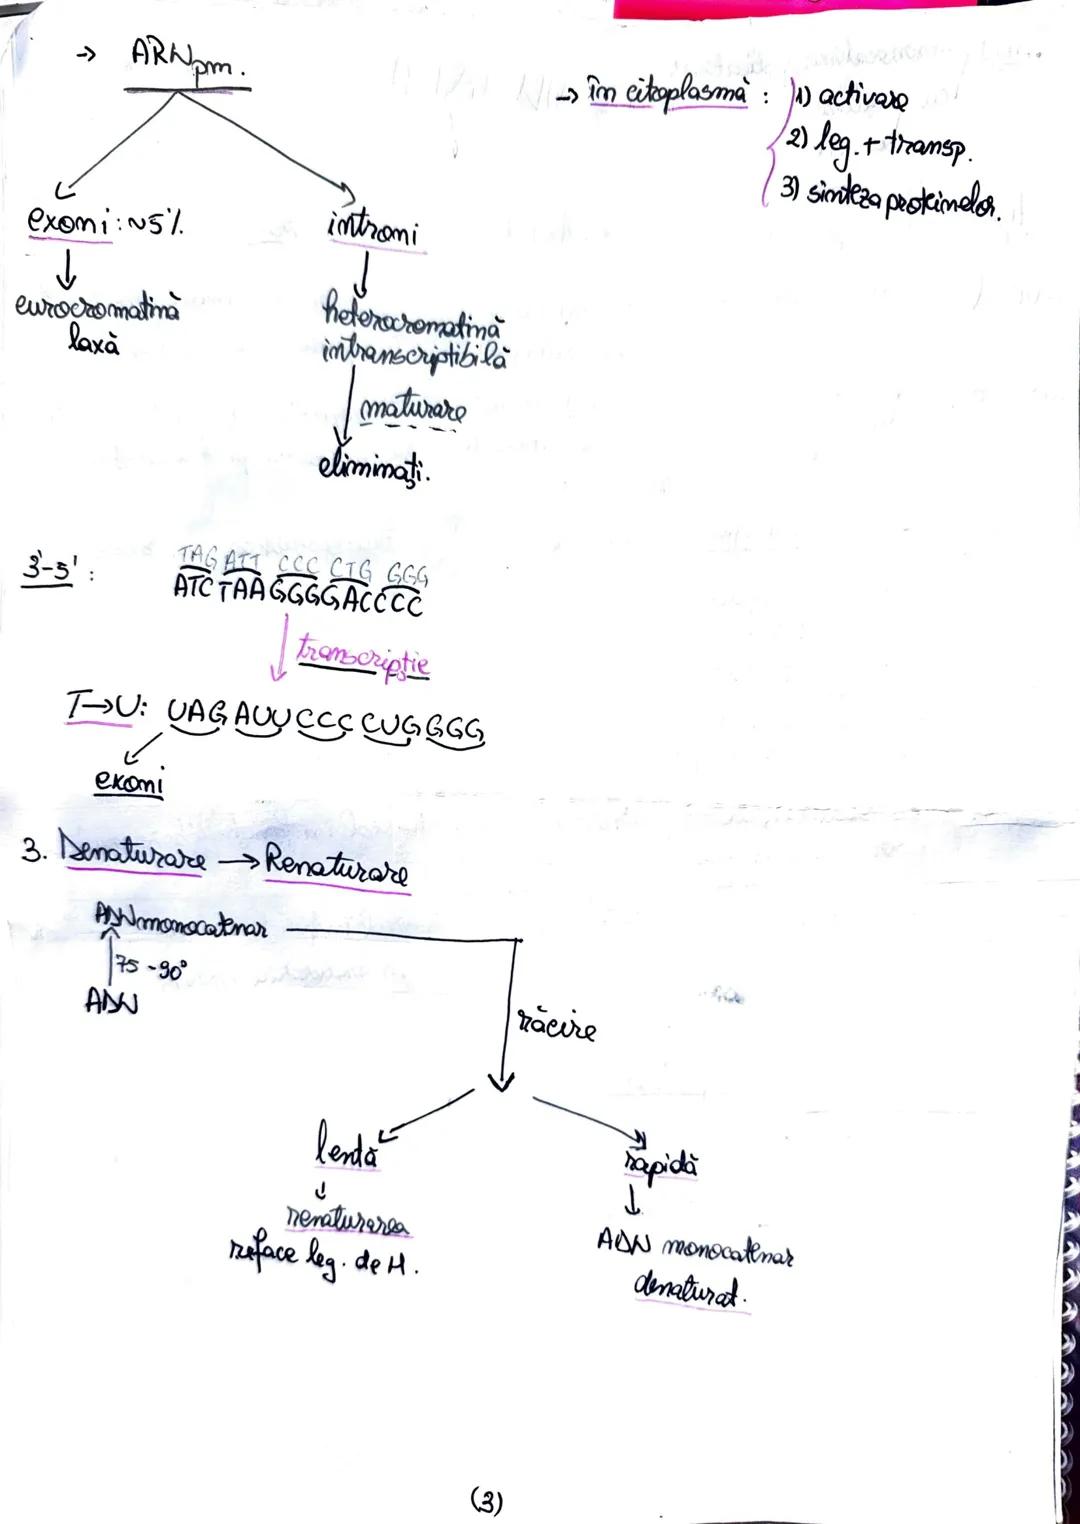 → ARNpm.
→ în citoplasmă : 1) activare
2) leg. + transp.
3) sinteza proteinelor.
exoni: ~5%
introni
eurocromatină
laxă
heterocromatină
intranscriptibilă
maturare
eliminați.
3'-5' :
TAG ATT CCC CTG GGG
ATC TAA GGGGACCCC
transcripție
T→U: UAG AUU CCC CUG GGG
exoni
3. Denaturare → Renaturare
ADN monocatenar
75-90°
ADN
răcire
lentă
rapidă
renaturarea
reface leg. de H.
ADN monocatenar
denaturat.
(3)